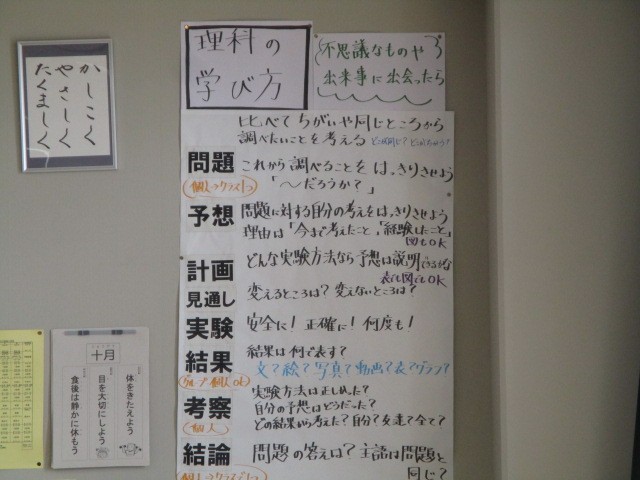 かしこく
やさしく
たくましく
理科の
学び方
不思議なものや
出来事に出会ったら
比べて ちがいや同じところから
調べたいことを考える
問題
これから調べることを はっきりさせよう
「～だろうか？」
予想
問題に対する自分の考えをはっきりさせよう
理由は「今まで考えたこと」「経験したこと」
図もOK
計画
どんな実験方法なら予想は説明できるかな
表でも図でもOK
見通し
変えるところは？変えないところは？
実験
安全に！正確に！何度も！
結果
結果は何で表す？
文？絵？写真？動画？表？グラフ？
考察
(個人)
実験方法は正しかった？
自分の予想はどうだった？
どの結果から考えた？自分？友達？全て？
結論
問題の答えは？主語は問題と
同じ？
十月
体をきたえよう
目を大切にしよう
食後は静かに休もう